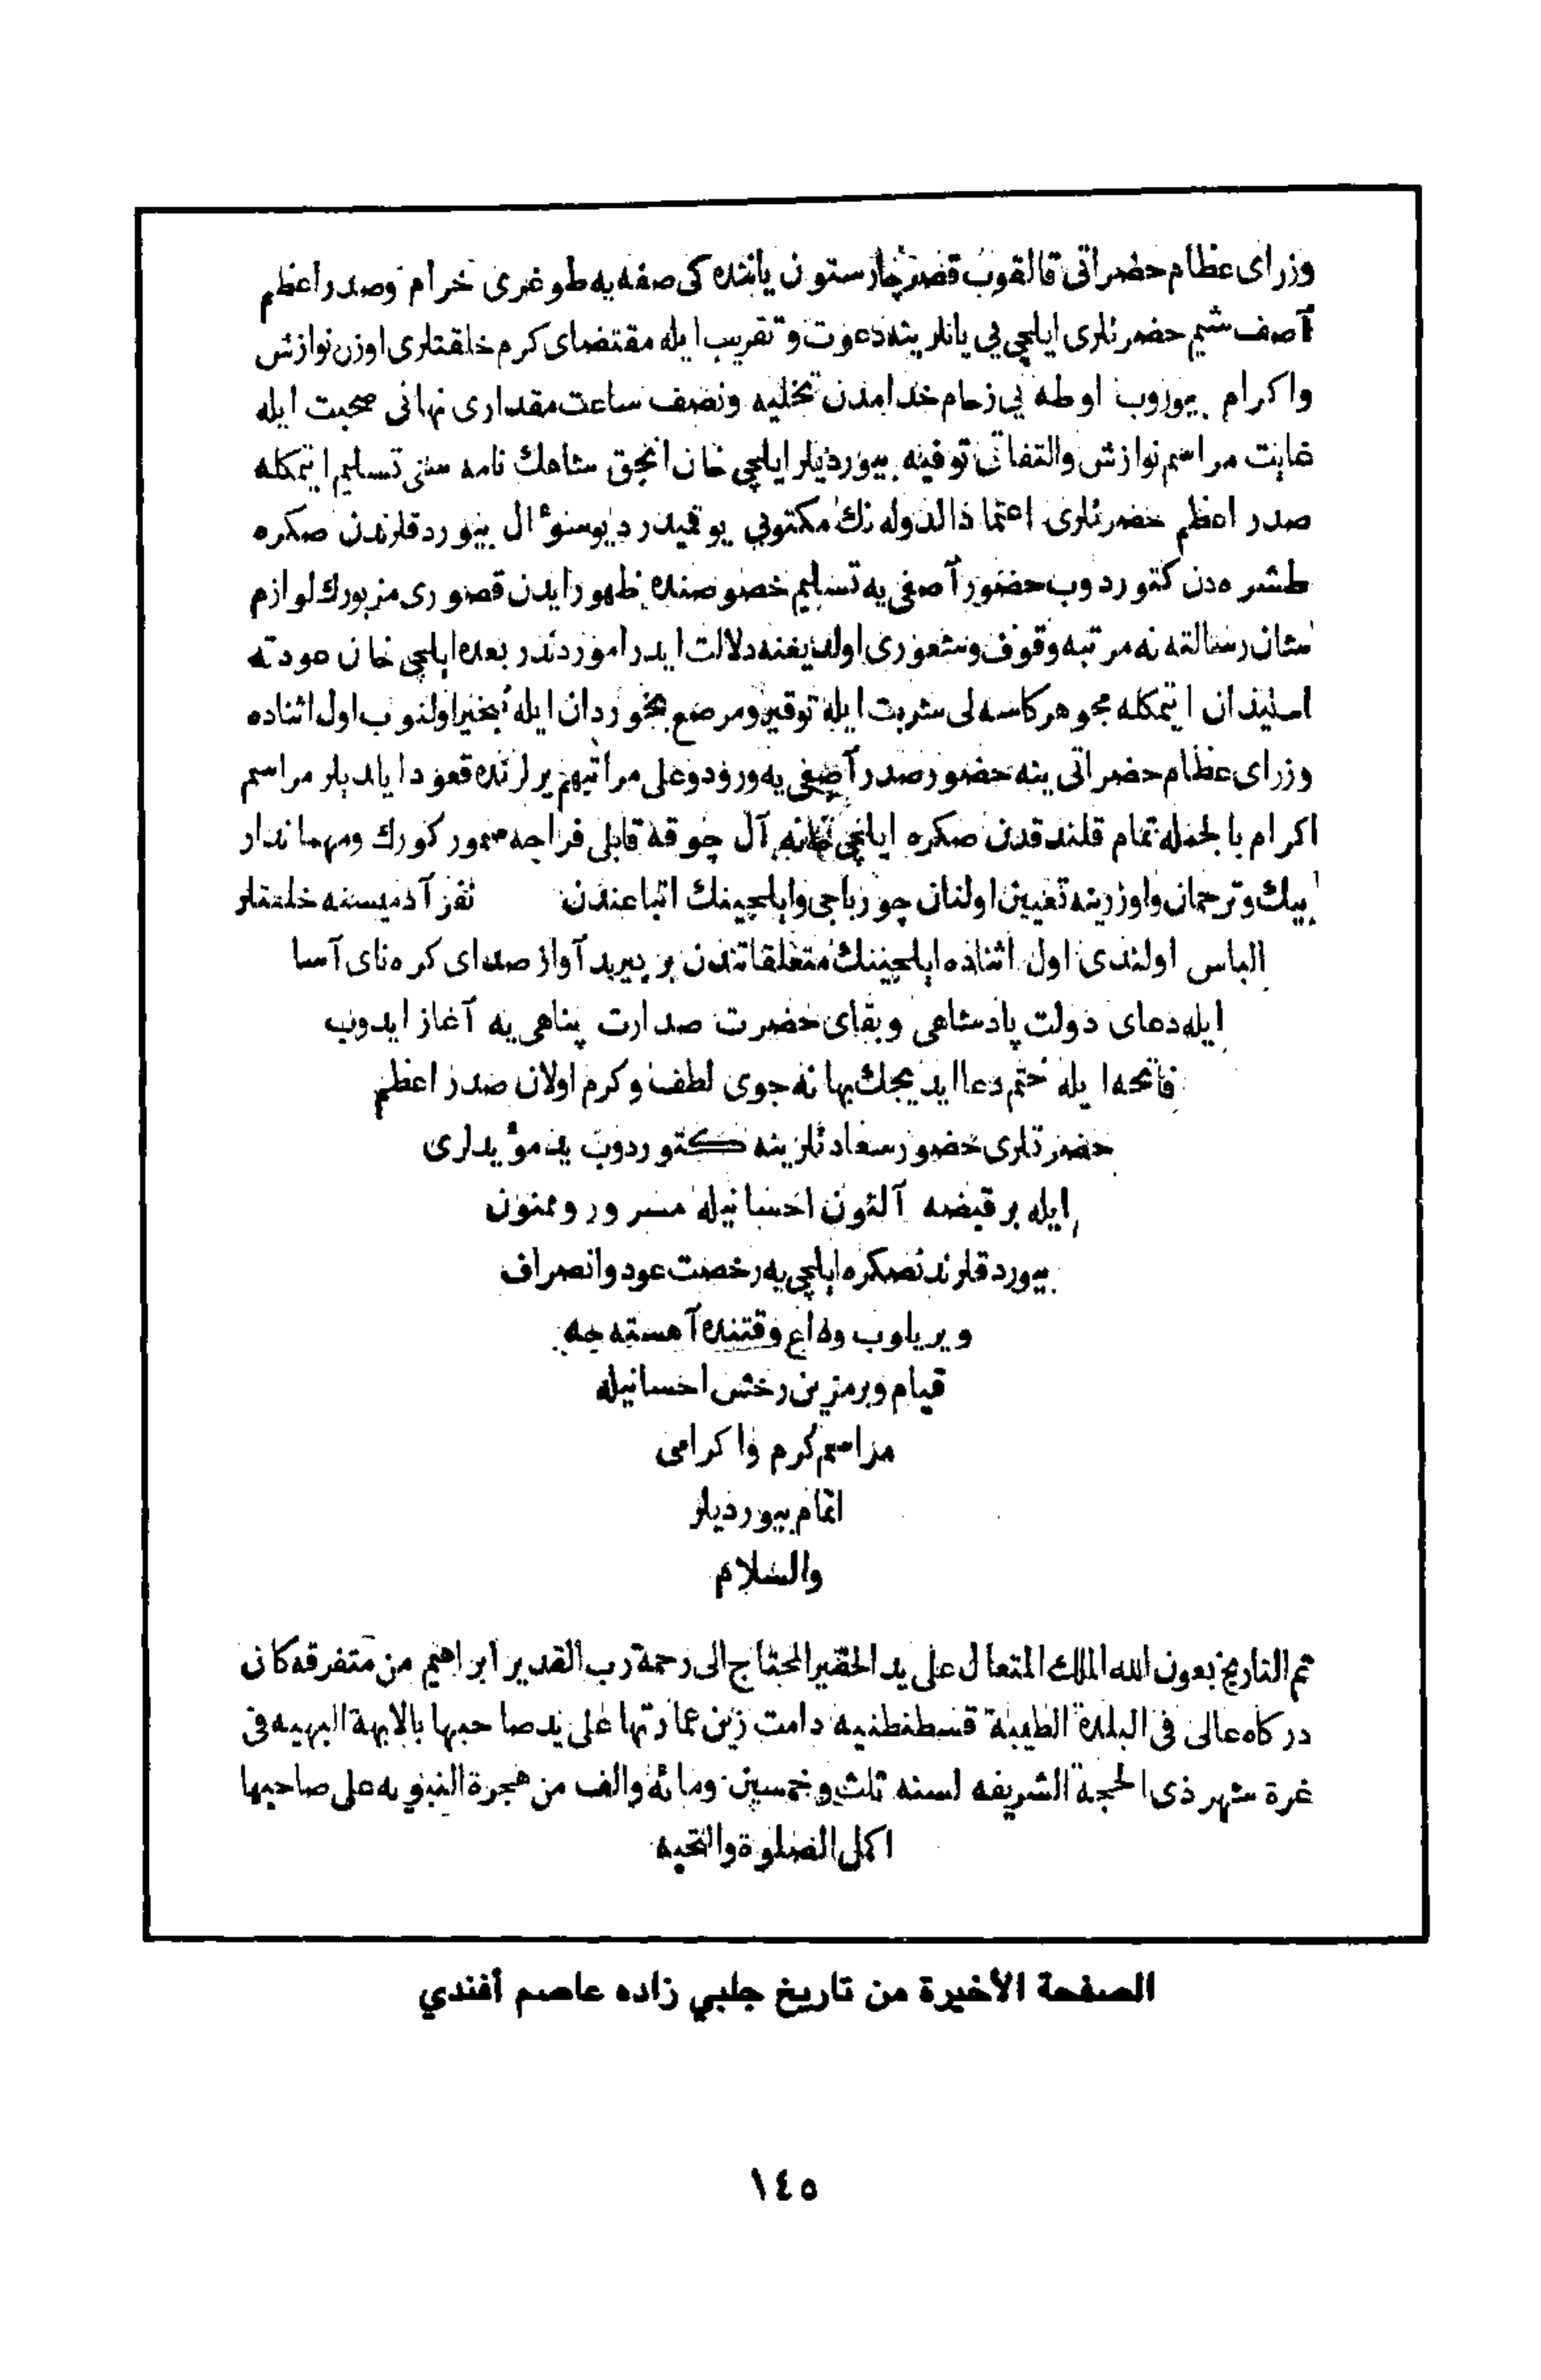 وزرای عظام حضراتی قالقوب قصر چارستون یاننده کی صفه یه طوغری خرام وصدر اعظم
آصف شیم حضرتلری ایلچی یی یانلرینه دعوت و تقریب ایله مقتضای کرم خلقتلری اوزن نوازش
واکرام بیوروب اوطه یی زحام خدامدن تخلیه ونصف ساعت مقداری نهانی صحبت ایله
غایت مراسم نوازش والتفاتی توفیه بیوردیلر ایلچی خان انجق شاهك نامه سنی تسلیم ایتمکله
صدر اعظم حضرتلری اعتماد الدوله نك مکتوبی یوقمیدر دیو سؤال بیوردقلرندن صکره
طشره دن کتوردوب حضور آصفی یه تسلیم خصوصنده ظهور ایدن قصوری مزبورك لوازم
شان رسالته نه مرتبه وقوف وشعوری اولدیغنه دلالت ایدر اموردندر بعده ایلچی خان عودته
استیذان ایتمکله مجوهر کاسه لی شربت ایله توقیر ومرصع بخوردان ایله تبخیر اولنوب اول اثناده
وزرای عظام حضراتی ینه حضور صدر آصفی یه ورود وعلی مراتبهم یرلرنده قعود ایلدیلر مراسم
اکرام بالجمله تمام قلندقدن صکره ایلچی آل چوقه قابلی فراجه سمور کورك ومهماندار
بیك وترجمان واوزرینه تعیین اولنان چورباجی وایلچینك اتباعندن نفر آدمیسنه خلعتلر
الباس اولندی اول اثناده ایلچینك متعلقاتندن بر پیرید آواز صدای کره نای آسا
ایله دعای دولت پادشاهی وبقای حضرت صدارت پناهی یه آغاز ایدوب
فاتحه ایله ختم دعا ایدیجك بهانه جوی لطف وکرم اولان صدر اعظم
حضرتلری حضور سعادتلرینه کتوردوب ید مؤیدلری
ایله بر قبضه آلتون احسانیله مسرور وممنون
بیوردقلرندنصکره ایلچی یه رخصت عود وانصراف
ویریلوب وداع وقتنده آهسته جه
قیام وبرمزین رخش احسانیله
مراسم کرم واکرامی
اتمام بیوردیلر
والسلام
تم التاریخ بعون الله الملك المتعال علی ید الحقیر المحتاج الی رحمة رب القدیر ابراهیم من متفرقه کان
درکاه عالی فی البلدة الطیبة قسطنطنیه دامت زین عمارتها علی ید صاحبها بالابهة البهیه فی
غرة شهر ذی الحجة الشریفه لسنه ثلث وخمسین ومائه والف من هجرة النبویه علی صاحبها
اکمل الصلوة والتحیه
الصفحة الأخيرة من تاريخ جلبي زاده عاصم أفندي
١٤٥